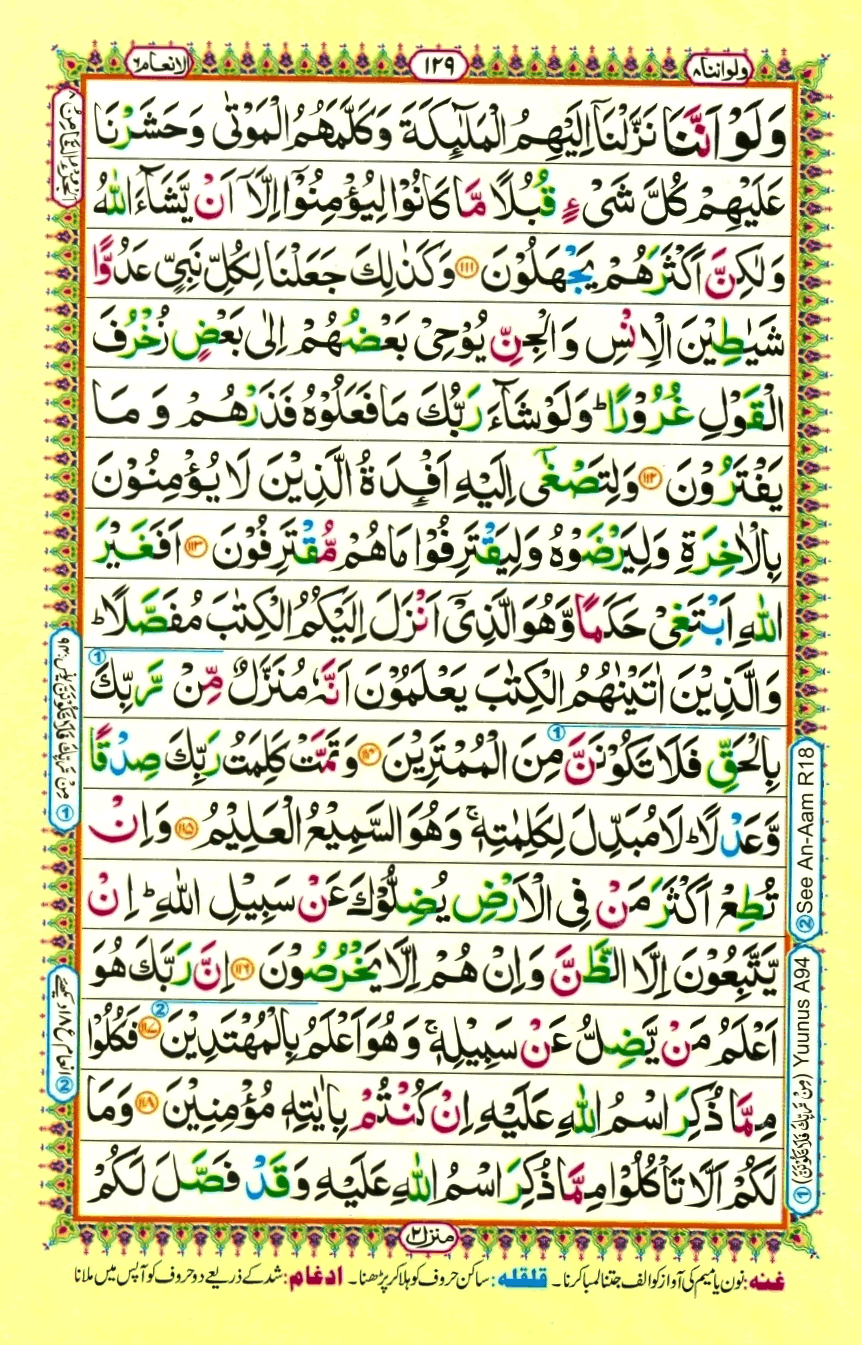 ولواننا ٨
١٢٩
الانعام ٦
وَلَوْ اَنَّنَا نَزَّلْنَاۤ اِلَيْهِمُ الْمَلٰٓئِكَةَ وَكَلَّمَهُمُ الْمَوْتٰى وَحَشَرْنَا
عَلَيْهِمْ كُلَّ شَىْءٍ قُبُلًا مَّا كَانُوْا لِيُؤْمِنُوْۤا اِلَّاۤ اَنْ يَّشَآءَ اللّٰهُ
وَلٰكِنَّ اَكْثَرَهُمْ يَجْهَلُوْنَ ١١١ وَكَذٰلِكَ جَعَلْنَا لِكُلِّ نَبِىٍّ عَدُوًّا
شَيٰطِيْنَ الْاِنْسِ وَالْجِنِّ يُوْحِىْ بَعْضُهُمْ اِلٰى بَعْضٍ زُخْرُفَ
الْقَوْلِ غُرُوْرًا ؕ وَلَوْ شَآءَ رَبُّكَ مَا فَعَلُوْهُ فَذَرْهُمْ وَمَا
يَفْتَرُوْنَ ١١٢ وَلِتَصْغٰۤى اِلَيْهِ اَفْـِٕدَةُ الَّذِيْنَ لَا يُؤْمِنُوْنَ
بِالْاٰخِرَةِ وَلِيَرْضَوْهُ وَلِيَقْتَرِفُوْا مَا هُمْ مُّقْتَرِفُوْنَ ١١٣ اَفَغَيْرَ
اللّٰهِ اَبْتَغِىْ حَكَمًا وَّهُوَ الَّذِىْۤ اَنْزَلَ اِلَيْكُمُ الْكِتٰبَ مُفَصَّلًا ؕ
وَالَّذِيْنَ اٰتَيْنٰهُمُ الْكِتٰبَ يَعْلَمُوْنَ اَنَّهٗ مُنَزَّلٌ مِّنْ رَّبِّكَ
بِالْحَقِّ فَلَا تَكُوْنَنَّ مِنَ الْمُمْتَرِيْنَ ١١٤ وَتَمَّتْ كَلِمَتُ رَبِّكَ صِدْقًا
وَّعَدْلًا ؕ لَا مُبَدِّلَ لِكَلِمٰتِهٖ ۚ وَهُوَ السَّمِيْعُ الْعَلِيْمُ ١١٥ وَاِنْ
تُطِعْ اَكْثَرَ مَنْ فِى الْاَرْضِ يُضِلُّوْكَ عَنْ سَبِيْلِ اللّٰهِ ؕ اِنْ
يَّتَّبِعُوْنَ اِلَّا الظَّنَّ وَاِنْ هُمْ اِلَّا يَخْرُصُوْنَ ١١٦ اِنَّ رَبَّكَ هُوَ
اَعْلَمُ مَنْ يَّضِلُّ عَنْ سَبِيْلِهٖ ۚ وَهُوَ اَعْلَمُ بِالْمُهْتَدِيْنَ ١١٧ فَكُلُوْا
مِمَّا ذُكِرَ اسْمُ اللّٰهِ عَلَيْهِ اِنْ كُنْتُمْ بِاٰيٰتِهٖ مُؤْمِنِيْنَ ١١٨ وَمَا
لَكُمْ اَلَّا تَاْكُلُوْا مِمَّا ذُكِرَ اسْمُ اللّٰهِ عَلَيْهِ وَقَدْ فَصَّلَ لَكُمْ
② See An-Aam R18
① (مِنْ رَّبِّكَ فَلَا تَكُوْنَنَّ) Yuunus A94
منزل ٢
غنه: نون یا میم کی آواز کو الف جتنا لمبا کرنا۔ قلقله: ساکن حروف کو ہلا کر پڑھنا۔ ادغام: شد کے ذریعے دو حروف کو آپس میں ملانا